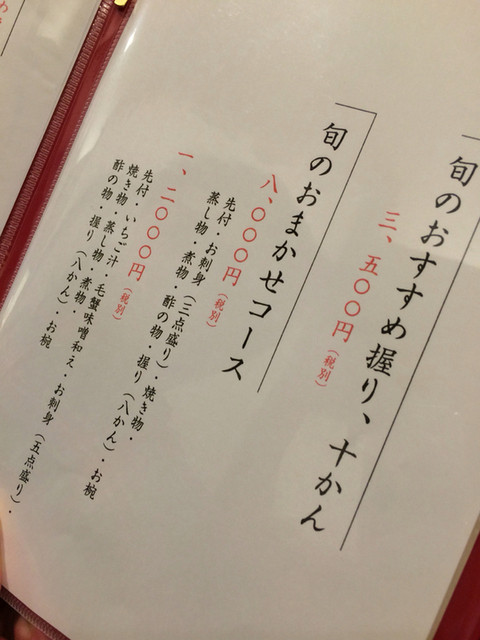 旬のおすすめ握り、十かん
三、五〇〇円（税別）
旬のおまかせコース
八、〇〇〇円（税別）
先付・お刺身（三点盛り）・焼き物・
蒸し物・煮物・酢の物・握り（八かん）・お椀
一、二〇〇〇円（税別）
先付・いちご汁・毛蟹味噌和え・お刺身（五点盛り）・
焼き物・蒸し物・煮物・
酢の物・握り（八かん）・お椀